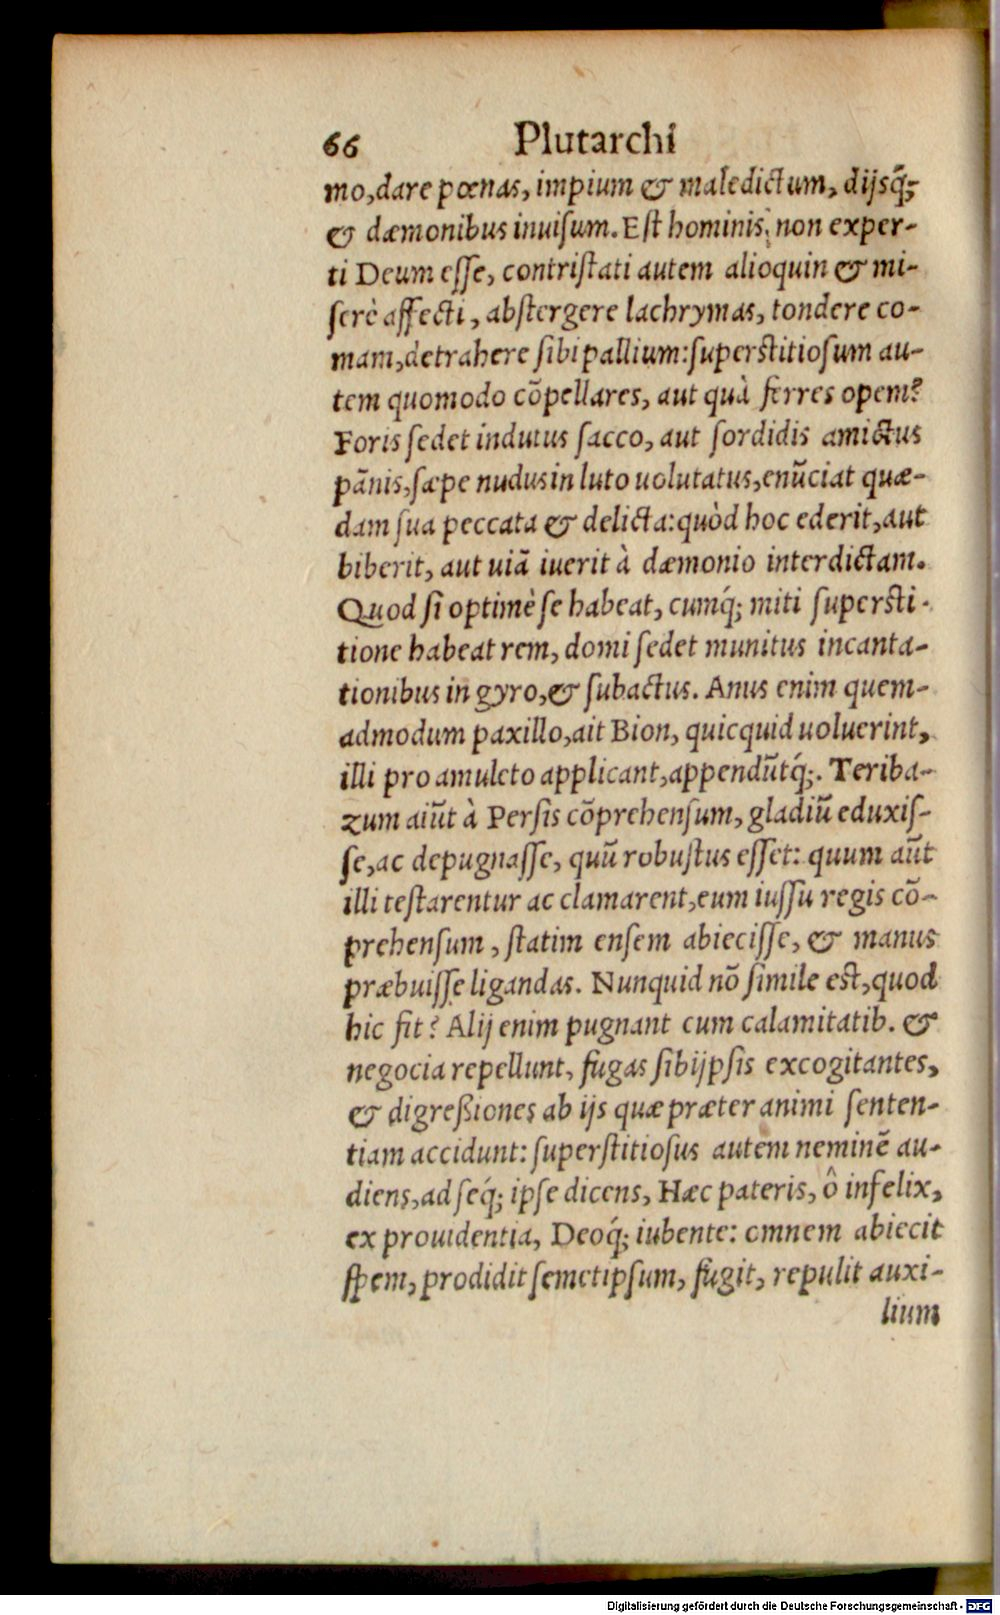 66 Plutarchi
mo, dare pœnas, impium & maledictum, dijsq́;
& dæmonibus inuisum. Est hominis, non exper-
ti Deum esse, contristati autem alioquin & mi-
serè affecti, abstergere lachrymas, tondere co-
mam, detrahere sibi pallium: superstitiosum au-
tem quomodo cõpellares, aut quà ferres opem?
Foris sedet indutus sacco, aut sordidis amictus
pãnis, sæpe nudus in luto uolutatus, enũciat quæ-
dam sua peccata & delicta: quòd hoc ederit, aut
biberit, aut uiã iuerit à dæmonio interdictam.
Quod si optimè se habeat, cumq́; miti supersti-
tione habeat rem, domi sedet munitus incanta-
tionibus in gyro, & subactus. Anus enim quem-
admodum paxillo, ait Bion, quicquid uoluerint,
illi pro amuleto applicant, appendũtq́;. Teriba-
zum aiũt à Persis cõprehensum, gladiũ eduxis-
se, ac depugnasse, quũ robustus esset: quum aũt
illi testarentur ac clamarent, eum iussu regis cõ-
prehensum, statim ensem abiecisse, & manus
præbuisse ligandas. Nunquid nõ simile est, quod
hic fit? Alij enim pugnant cum calamitatib. &
negocia repellunt, fugas sibijpsis excogitantes,
& digreßiones ab ijs quæ præter animi senten-
tiam accidunt: superstitiosus autem neminẽ au-
diens, ad seq́; ipse dicens, Hæc pateris, ô infelix,
ex prouidentia, Deoq́; iubente: omnem abiecit
spem, prodidit semetipsum, fugit, repulit auxi-
lium
Digitalisierung gefördert durch die Deutsche Forschungsgemeinschaft - DFG